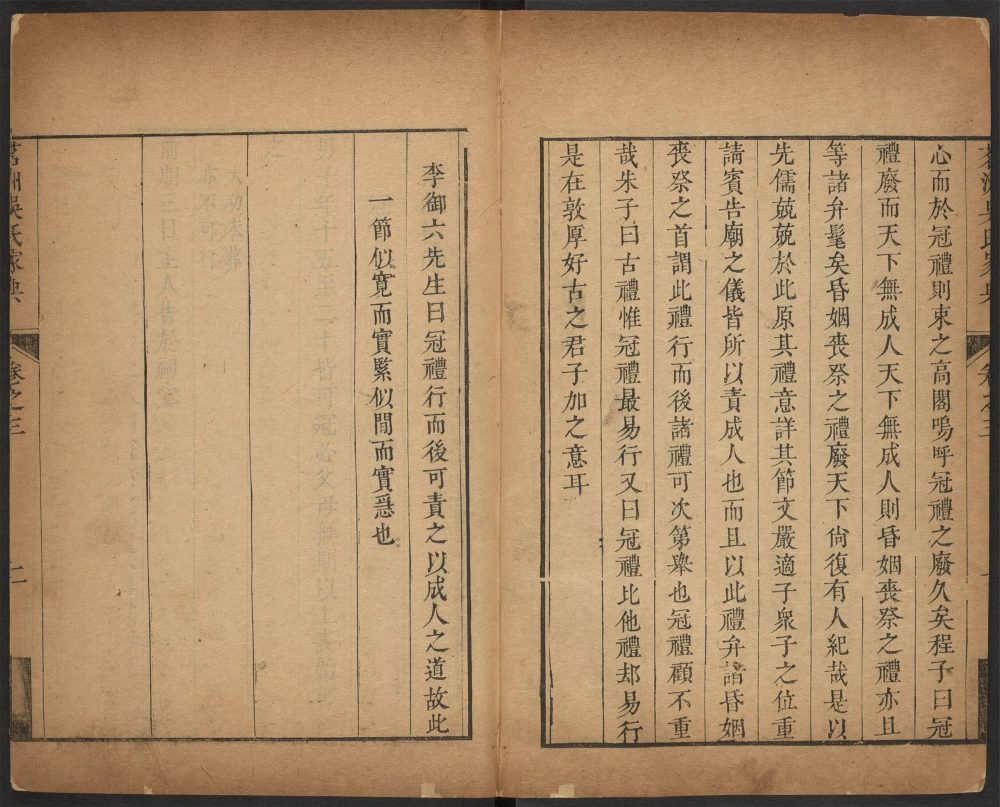 茗洲吳氏家典 卷之三
心而於冠禮則束之高閣嗚呼冠禮之廢久矣程子曰冠
禮廢而天下無成人天下無成人則昏姻喪祭之禮亦且
等諸弁髦矣昏姻喪祭之禮廢天下尙復有人紀哉是以
先儒兢兢於此原其禮意詳其節文嚴適子衆子之位重
請賓告廟之儀皆所以責成人也而且以此禮弁諸昏姻
喪祭之首謂此禮行而後諸禮可次第舉也冠禮顧不重
哉朱子曰古禮惟冠禮最易行又曰冠禮比他禮却易行
是在敦厚好古之君子加之意耳
李御六先生曰冠禮行而後可責之以成人之道故此
一節似寛而實緊似閒而實急也
茗洲吳氏家典 卷之三 二